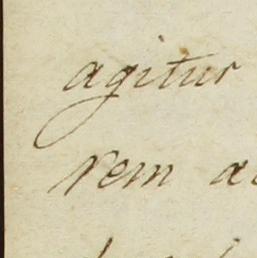 agitur
rem